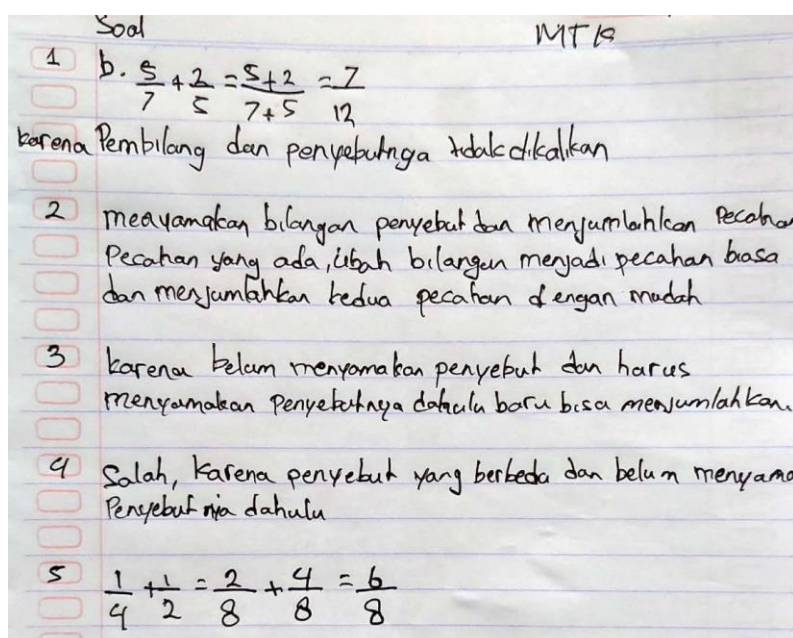 Soal
MTK
1 b. 5/7 + 2/5 = 5+2/7+5 = 7/12
karena Pembilang dan penyebutnya tidak dikalikan
2 menyamakan bilangan penyebut dan menjumlahkan Pecahan
Pecahan yang ada, ubah bilangan menjadi pecahan biasa
dan menjumlahkan kedua pecahan dengan mudah
3 karena belum menyamakan penyebut dan harus
menyamakan Penyebutnya dahulu baru bisa menjumlahkan.
4 Salah, karena penyebut yang berbeda dan belum menyama
Penyebut nya dahulu
5 1/4 + 1/2 = 2/8 + 4/8 = 6/8